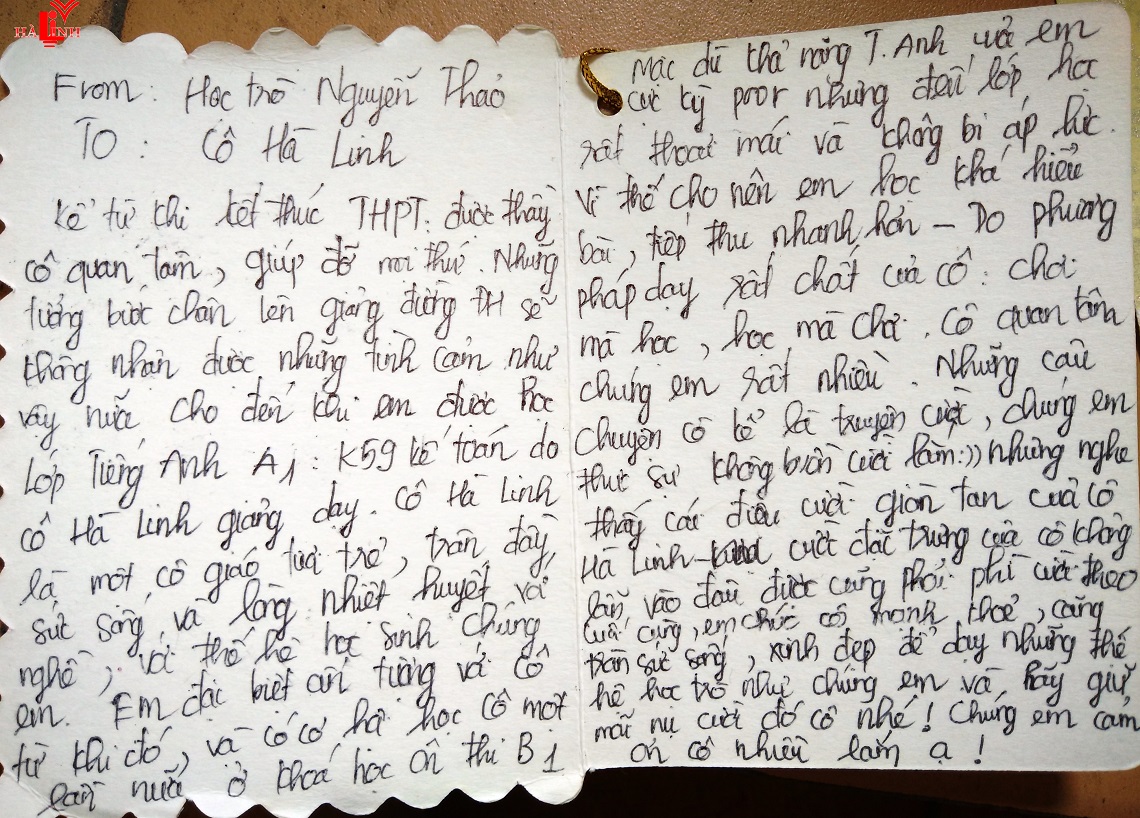 HÀ LINH
From: Học trò Nguyễn Thảo
TO : Cô Hà Linh
Kể từ khi kết thúc THPT: được thầy
cô quan tâm, giúp đỡ mọi thứ. Những
tưởng bước chân lên giảng đường ĐH sẽ
không nhận được những tình cảm như
vậy nữa cho đến khi em được học
lớp Tiếng Anh A1: K59 kế toán do
cô Hà Linh giảng dạy. Cô Hà Linh
là một cô giáo tươi trẻ, tràn đầy
sức sống, và lòng nhiệt huyết với
nghề, với thế hệ học sinh chúng
em. Em đặc biệt ấn tượng với cô
từ khi đó, và có cơ hội học cô một
lần nữa ở khoá học ôn thi B1
Mặc dù khả năng T. Anh của em
cực kỳ poor nhưng đến lớp học
rất thoải mái và không bị áp lực.
Vì thế cho nên em học khá hiểu
bài, tiếp thu nhanh hơn - Do phương
pháp dạy rất chất của cô: chơi
mà học, học mà chơi. Cô quan tâm
chúng em rất nhiều. Những câu
chuyện cô kể là truyện cười, chúng em
thực sự không buồn cười lắm:)) nhưng nghe
thấy cái điệu cười giòn tan của cô
Hà Linh - cười đặc trưng của cô không
lẫn vào đâu được cũng phải phì cười theo
Cuối cùng, em chúc cô mạnh khoẻ, càng
tràn sức sống, xinh đẹp để dạy những thế
hệ học trò như chúng em và hãy giữ
mãi nụ cười đó cô nhé! Chúng em cảm
ơn cô nhiều lắm ạ!